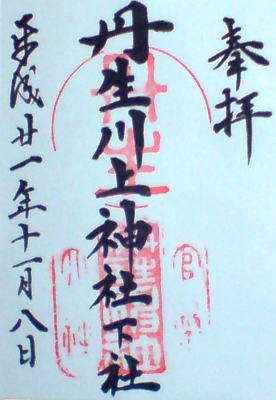 奉拝
丹生川上神社下社
平成廿一年十一月八日